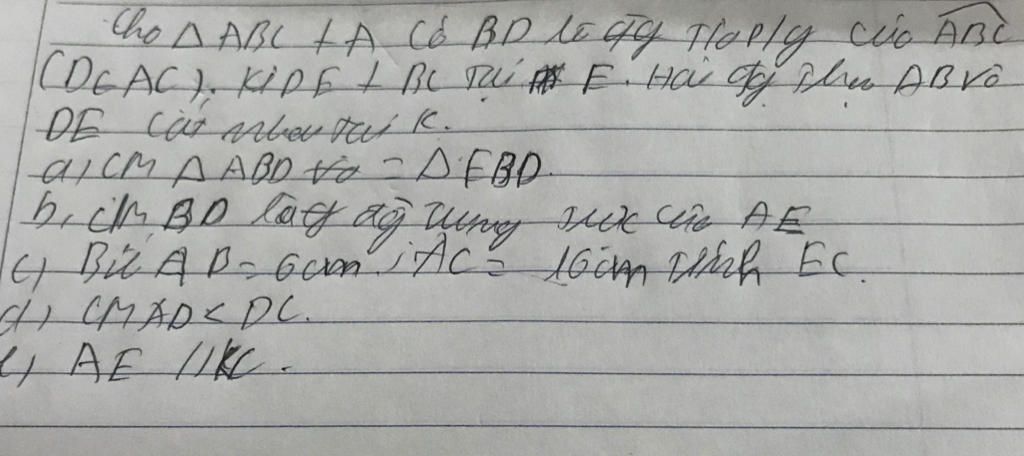 Cho Δ ABC ⊥ A Có BD là đg p/g của ABC
(D∈AC). Kẻ DE ⊥ BC Tại E. Hai đg thẳng AB và
DE Cắt nhau tại K.
a, CM Δ ABD = Δ EBD.
b, CM BD là đg trung trực của AE
c) Biết AB = 6cm ; AC = 16cm tính EC.
d) CM AD < DC.
e) AE // KC.